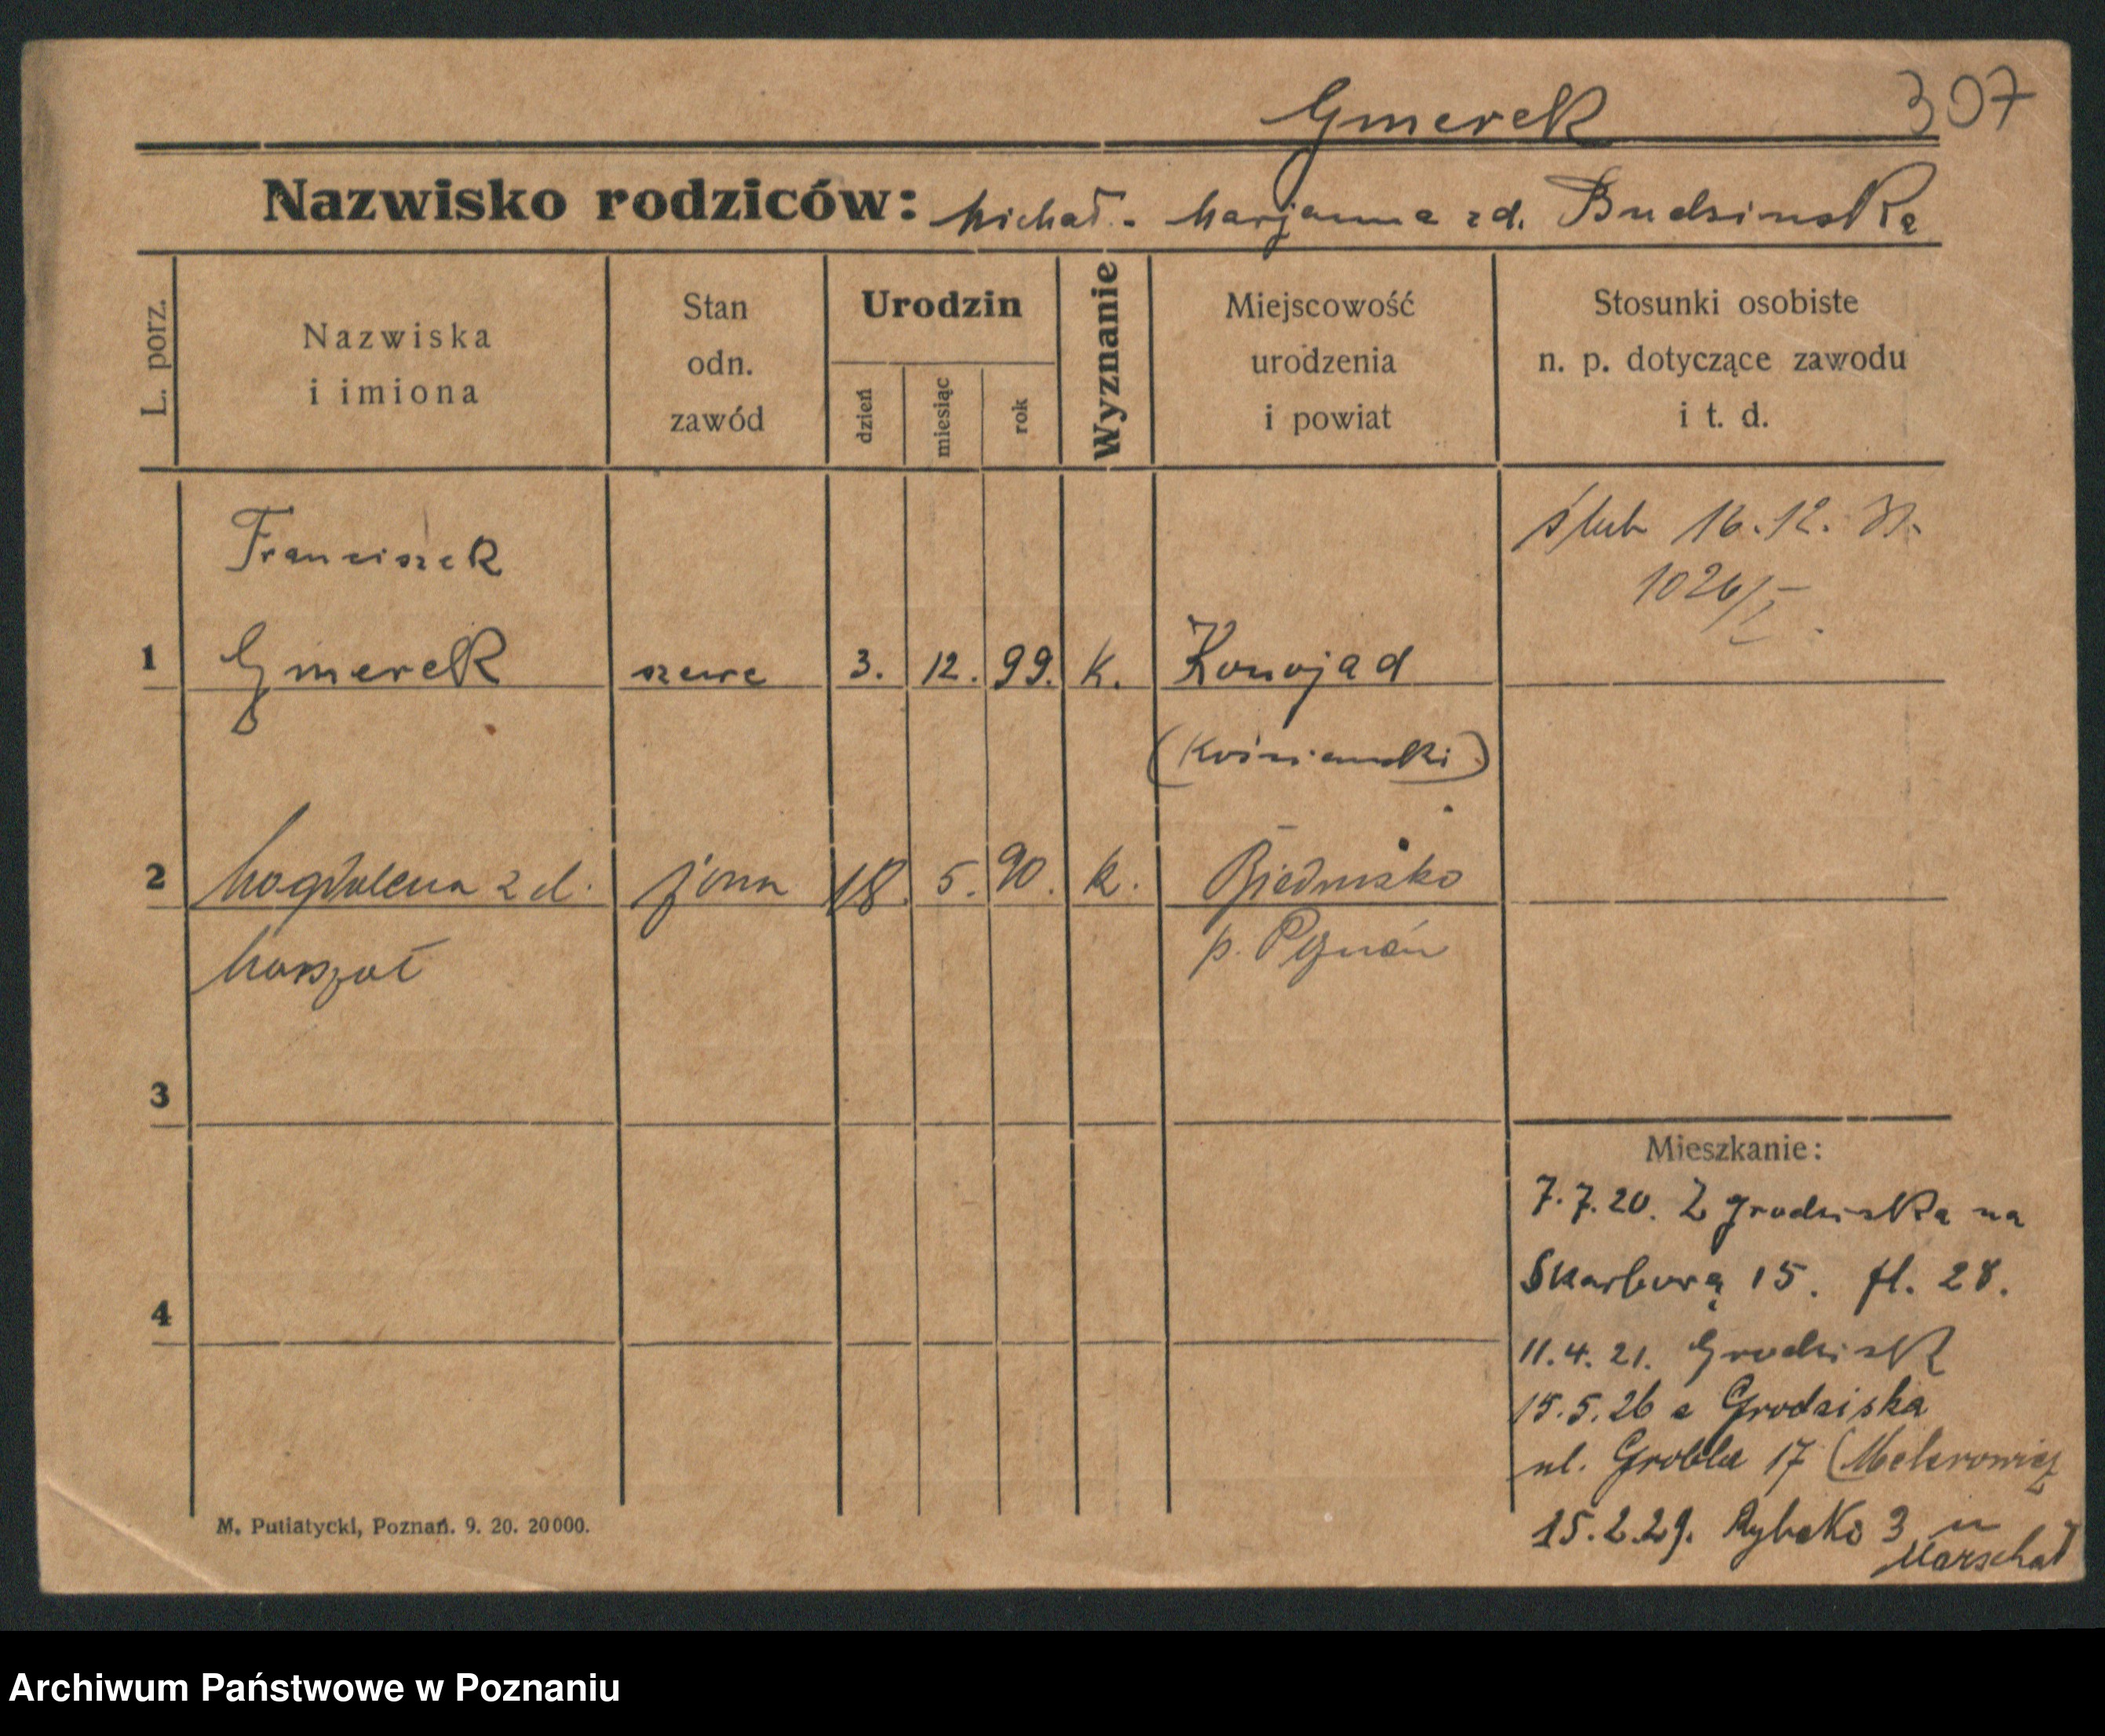 Gmerek 307
Nazwisko rodziców: Michał - Marjanna zd. Budzinska
L. porz.
Nazwiska
i imiona
Stan
odn.
zawód
Urodzin
dzień
miesiąc
rok
Wyznanie
Miejscowość
urodzenia
i powiat
Stosunki osobiste
n. p. dotyczące zawodu
i t. d.
Franciszek
ślub 16.12.
1026/I.
1 Gmerek szewc 3. 12. 99. k. Konojad
(Kościański)
2 Magdalena zd. żona 18. 5. 90. k. Biedrusko
Marszał p. Poznań
3
Mieszkanie:
7.7.20. Z Grodziska na
Skarbową 15. fl. 28.
4
11.4.21. Grodzisk
15.5.26 z Grodziska
ul. Grobla 17
15.2.29. Rybaki 3 u
Marschał
M. Putiatycki, Poznań. 9. 20. 20000.
Archiwum Państwowe w Poznaniu